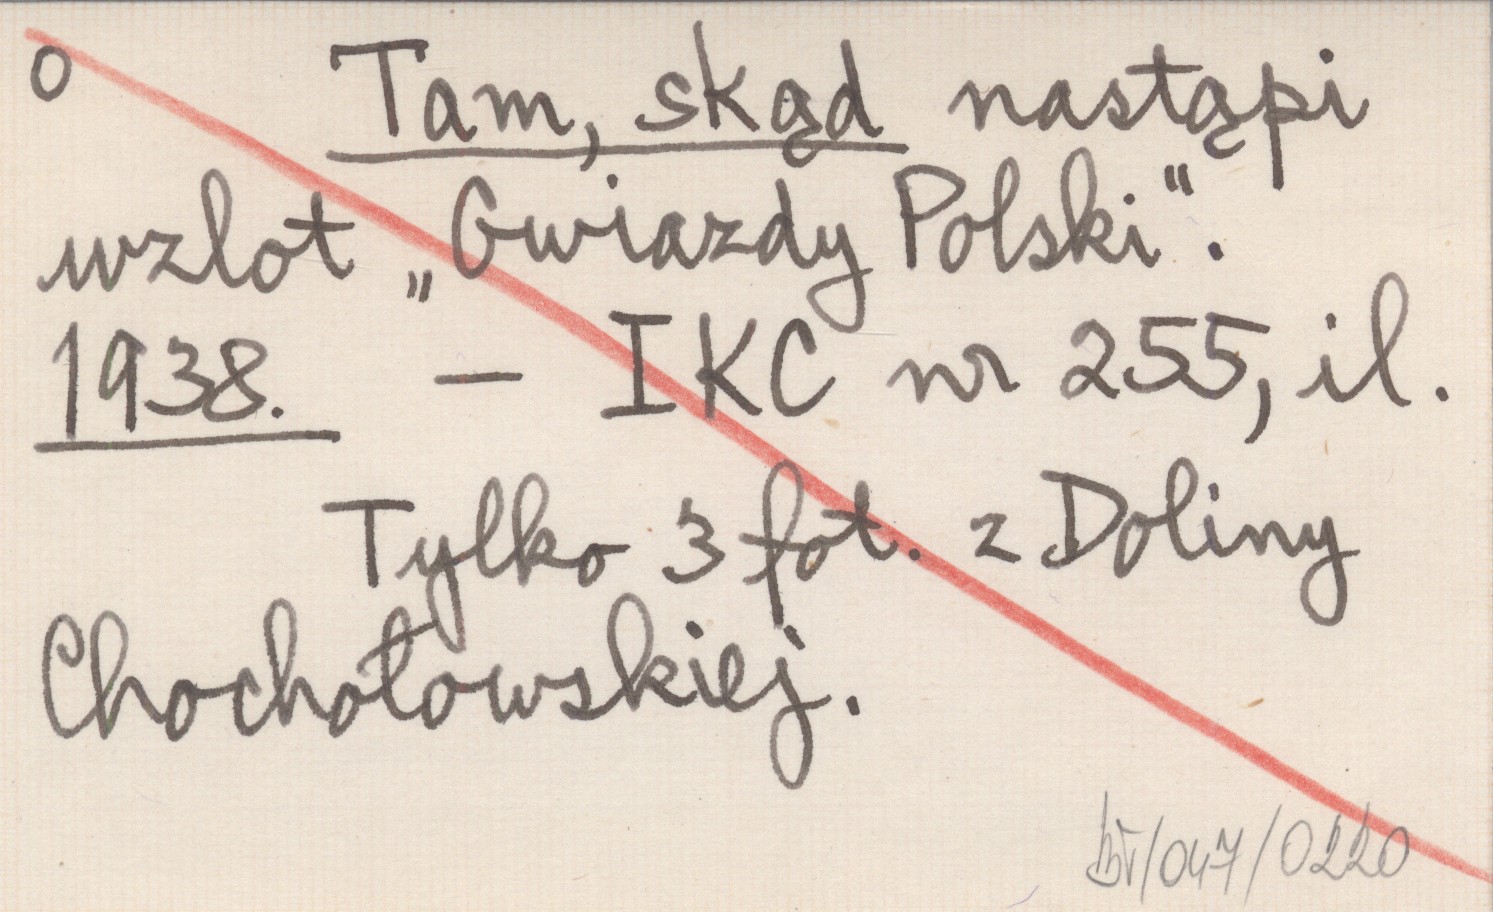 o Tam, skąd nastąpi
wzlot „Gwiazdy Polski".
1938. – IKC nr 255, il.
Tylko 3 fot. z Doliny
Chochołowskiej.
/047/0220